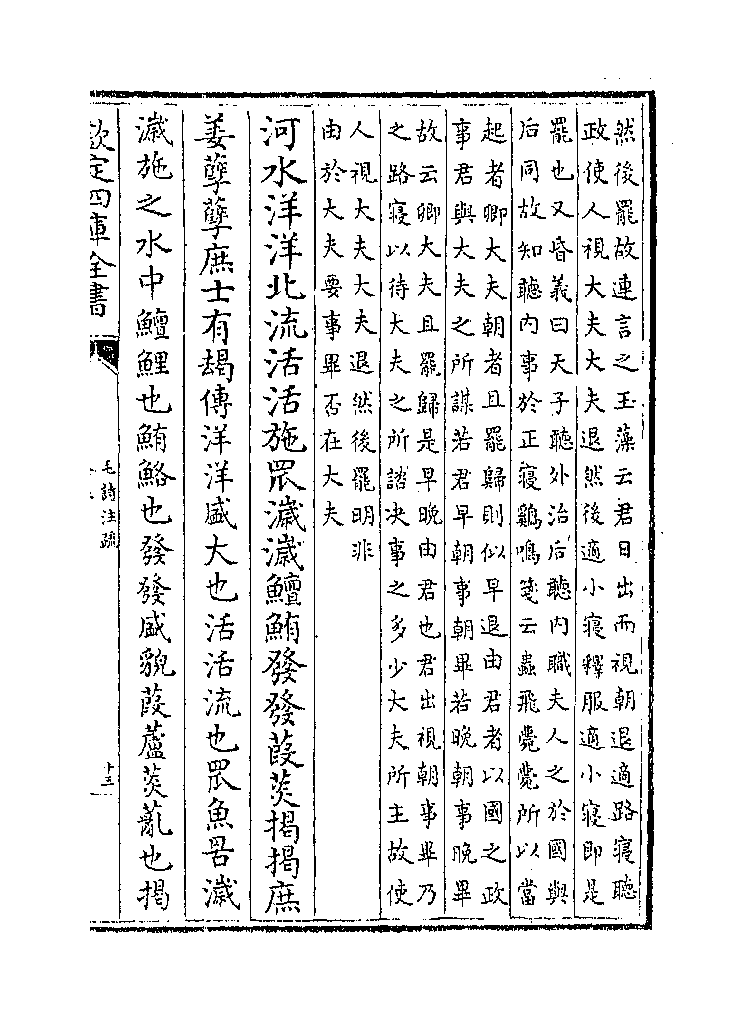 然後罷故連言之玉藻云君日出而視朝退適路寢聽
政使人視大夫大夫退然後適小寢釋服適小寢即是
罷也又昏義曰天子聽外治后聽内職夫人之於國與
后同故知聽内事於正寢鷄鳴箋云蟲飛薨薨所以當
起者卿大夫朝者且罷歸則似早退由君者以國之政
事君與大夫之所謀若君早朝事朝畢若晚朝事晚畢
故云卿大夫且罷歸是早晚由君也君出視朝事畢乃
之路寢以待大夫之所諮决事之多少大夫所主故使
人視大夫大夫退然後罷明非
由於大夫要事畢否在大夫
河水洋洋北流活活施罛濊濊鱣鮪發發葭菼揭揭庶
姜孽孽庶士有朅傳洋洋盛大也活活流也罛魚罟濊
濊施之水中鱣鯉也鮪鮥也發發盛貌葭蘆菼薍也揭
欽定四庫全書
毛詩注疏
十三